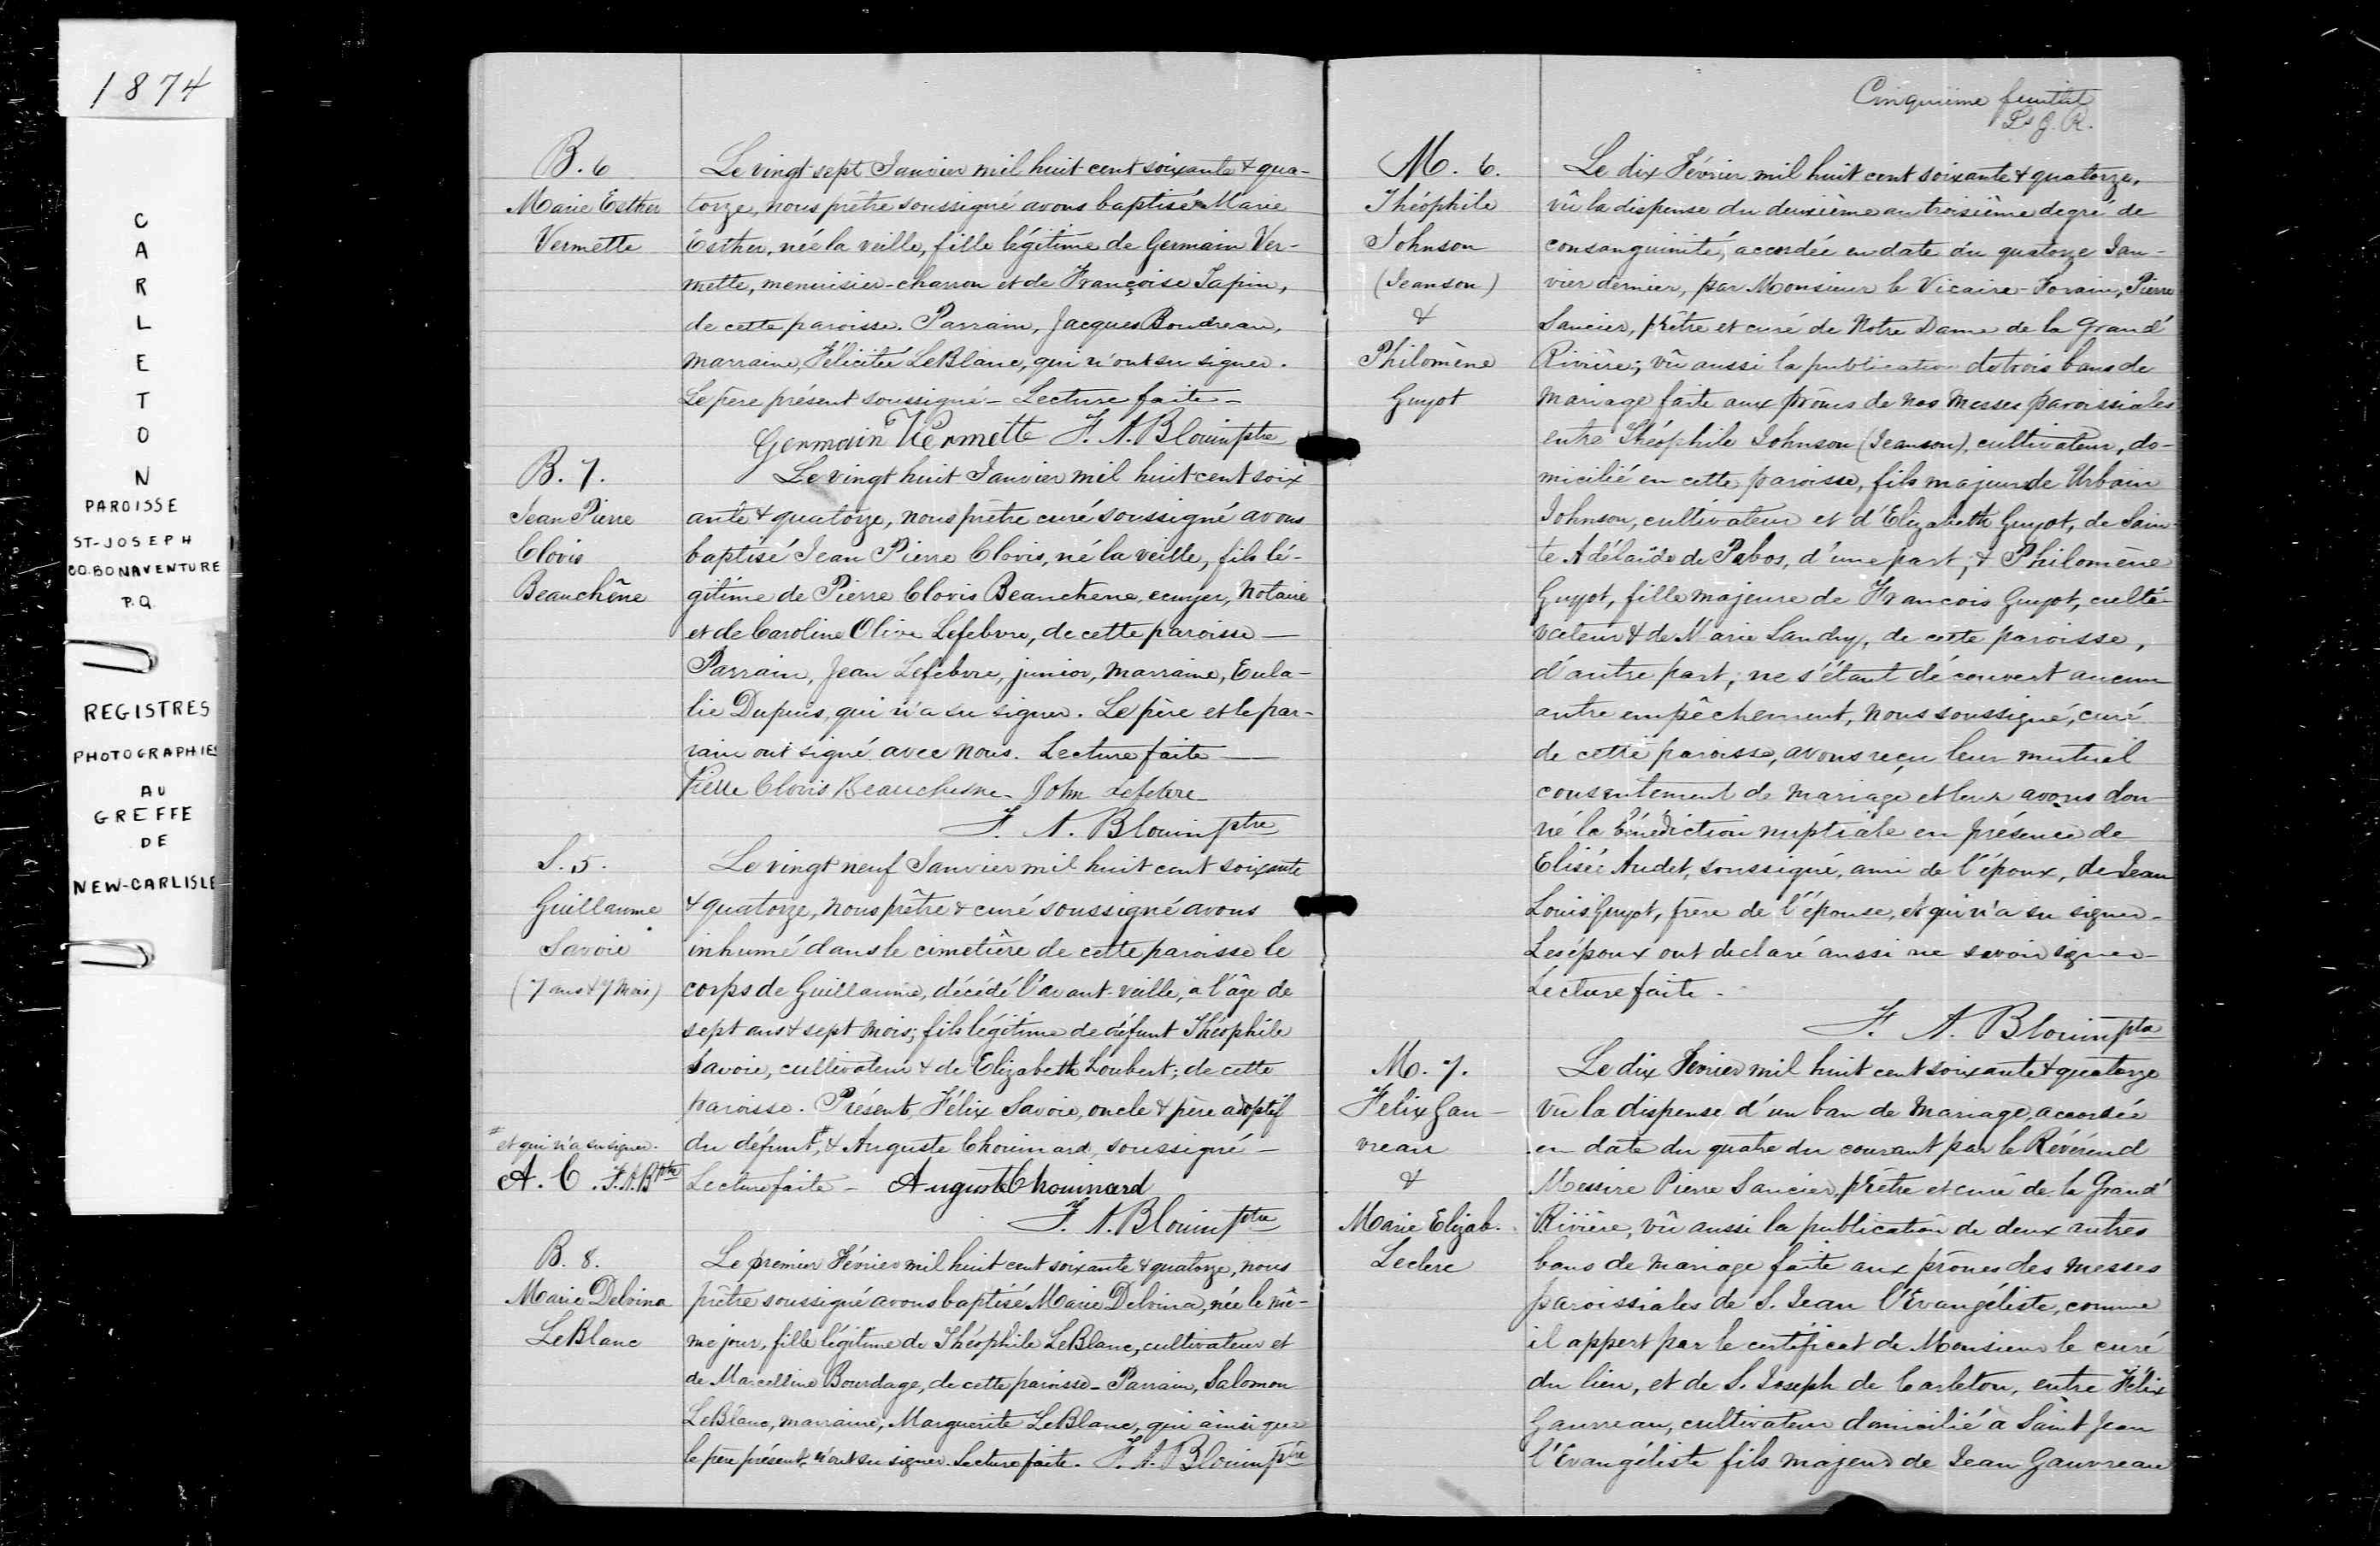 1874
CARLETON
PAROISSE
ST-JOSEPH
CO. BONAVENTURE
P.Q.
REGISTRES
PHOTOGRAPHIES
AU
GREFFE
DE
NEW-CARLISLE
B. 6
Marie Esther
Vermette
Le vingt sept Janvier mil huit cent soixante & qua-
torze, nous prêtre soussigné avons baptisé Marie
Esther, née la veille, fille légitime de Germain Ver-
mette, menuisier-charron et de Françoise Sapin,
de cette paroisse. Parrain, Jacques Boudreau,
marraine, Félicitée LeBlanc, qui n'ont su signer.
Le père présent soussigné - Lecture faite -
Germain Vermette F. A. Blouin ptre
B. 7.
Jean Pierre
Clovis
Beauchêne
Le vingt huit Janvier mil huit cent soix
ante & quatorze, nous prêtre curé soussigné avons
baptisé Jean Pierre Clovis, né la veille, fils lé-
gitime de Pierre Clovis Beauchene, ecuyer, Notaire
et de Caroline Olive Lefebvre, de cette paroisse —
Parrain, Jean Lefebvre, junior, marraine, Eula-
lie Dupuis, qui n'a su signer. Le père et le par-
rain ont signé avec nous. Lecture faite —
Pierre Clovis Beauchesne - John Lefebvre
F. A. Blouin ptre
S. 5.
Guillaume
Savoie
(7 ans & 7 mois)
Le vingt neuf Janvier mil huit cent soixante
& quatorze, nous prêtre & curé soussigné avons
inhumé dans le cimetière de cette paroisse le
corps de Guillaume, décédé l'avant-veille, à l'âge de
sept ans & sept mois; fils légitime de défunt Théophile
Savoie, cultivateur & de Elizabeth Loubert; de cette
paroisse. Présents, Félix Savoie, oncle & père adoptif
du défunt,# & Auguste Chouinard, soussigné -
# et qui n'a su signer.
A. C. F. A. B ptre
Lecture faite - Auguste Chouinard
F. A. Blouin ptre
B. 8.
Marie Delvina
LeBlanc
Le premier Février mil huit cent soixante & quatorze, nous
prêtre soussigné avons baptisé Marie Delvina, née le mê-
me jour, fille légitime de Théophile LeBlanc, cultivateur et
de Marcelline Bourdage, de cette paroisse - Parrain, Salomon
LeBlanc, marraine, Marguerite LeBlanc, qui ainsi que
le père présent, n'ont su signer. Lecture faite. F. A. Blouin ptre
Cinquième feuillet
Ls J. R.
M. 6.
Théophile
Johnson
(Jeanson)
&
Philomène
Guyot
Le dix Février mil huit cent soixante & quatorze,
vû la dispense du deuxième au troisième degré de
consanguinité, accordée en date du quatorze Jan-
vier dernier, par Monsieur le Vicaire-Forain, Pierre
Saucier, prêtre et curé de Notre Dame de la Grand'
Rivière; vû aussi la publication de trois bans de
mariage faite aux prônes de nos messes paroissiales
entre Théophile Johnson (Jeanson), cultivateur, do-
micilié en cette paroisse, fils majeur de Urbain
Johnson, cultivateur et d'Elizabeth Guyot, de Sain-
te Adélaïde de Pabos, d'une part; & Philomène
Guyot, fille majeure de Francois Guyot, culti-
vateur & de Marie Landry, de cette paroisse,
d'autre part; ne s'étant découvert aucun
autre empêchement, nous soussigné, curé
de cette paroisse, avons reçu leur mutuel
consentement de mariage et leur avons don-
né la bénédiction nuptiale en présence de
Elisée Audet, soussigné, ami de l'époux, de Jean
Louis Guyot, frère de l'épouse, et qui n'a su signer -
Les époux ont declaré aussi ne savoir signer -
Lecture faite -
F. A. Blouin ptre
M. 7.
Felix Gau-
vreau
&
Marie Elizab.
Leclerc
Le dix Fevrier mil huit cent soixante & quatorze
vû la dispense d'un ban de mariage, accordée
en date du quatre du courant par le Révérend
Messire Pierre Saucier, prêtre et curé de la Grand'
Rivière, vû aussi la publication de deux autres
bans de mariage faite aux prônes des messes
paroissiales de S. Jean l'Evangéliste, comme
il appert par le certificat de Monsieur le curé
du lieu, et de S. Joseph de Carleton, entre Félix
Gauvreau, cultivateur domicilié à Saint Jean
l'Evangéliste fils majeur de Jean Gauvreau